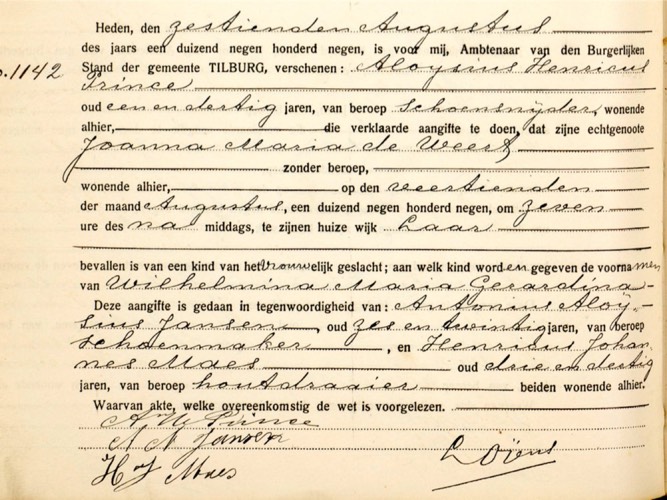 Heden, den zestienden Augustus
des jaars een duizend negen honderd negen, is voor mij, Ambtenaar van den Burgerlijken
Stand der gemeente TILBURG, verschenen: Aloysius Henricus
o. 1142
Prince
oud een en dertig jaren, van beroep schoensnijder, wonende
alhier, die verklaarde aangifte te doen, dat zijne echtgenoote
Joanna Maria de Weert
zonder beroep,
wonende alhier, op den veertienden
der maand Augustus, een duizend negen honderd negen, om zeven
ure des na middags, te zijnen huize wijk Laar
bevallen is van een kind van het vrouwelijk geslacht; aan welk kind worden gegeven de voornamen
van Wilhelmina Maria Gerardina
Deze aangifte is gedaan in tegenwoordigheid van: Antonius Aloÿ-
sius Jansen, oud zes en twintig jaren, van beroep
schoenmaker, en Henricus Johan
nes Maes oud drie en dertig
jaren, van beroep houtdraaier beiden wonende alhier.
Waarvan akte, welke overeenkomstig de wet is voorgelezen.
A H Prince
A A Jansen
H J Maes